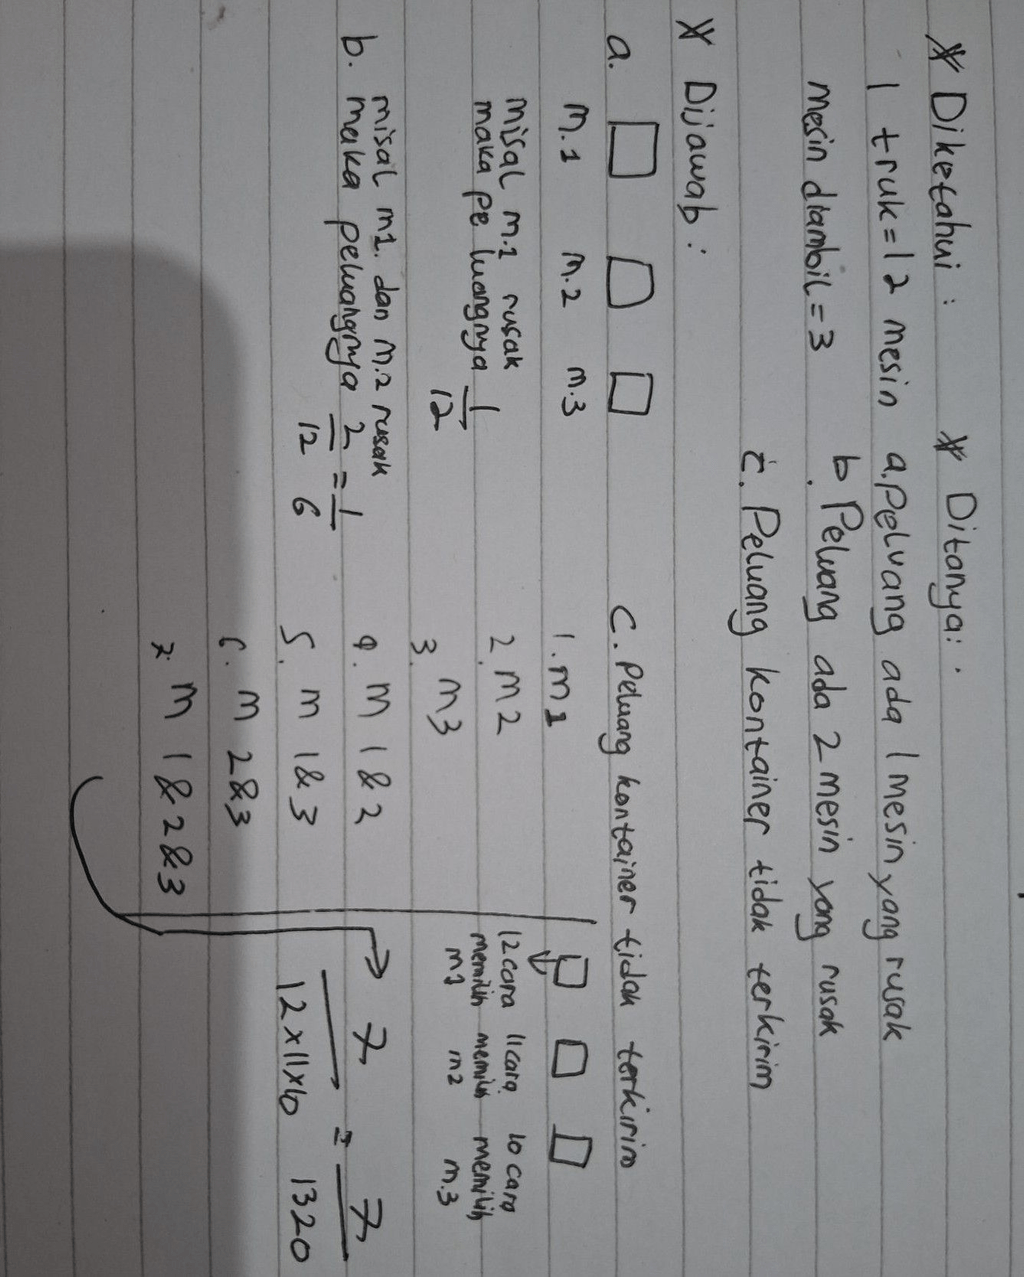 * Diketahui :
1 truk = 12 mesin
mesin diambil = 3
* Ditanya :
a. Peluang ada 1 mesin yang rusak
b. Peluang ada 2 mesin yang rusak
c. Peluang kontainer tidak terkirim
* Dijawab :
a.
m.1 m.2 m.3
misal m.1 rusak
maka pe luangnya 1/12
b. misal m1. dan m.2 rusak
maka peluangnya 2/12 = 1/6
c. Peluang kontainer tidak terkirim
1. m1
2. m2
3. m3
4. m 1 & 2
5. m 1 & 3
6. m 2 & 3
7. m 1 & 2 & 3
12 cara 11 cara 10 cara
memilih memilih memilih
m1 m2 m.3
7 / 12 x 11 x 10 = 7 / 1320